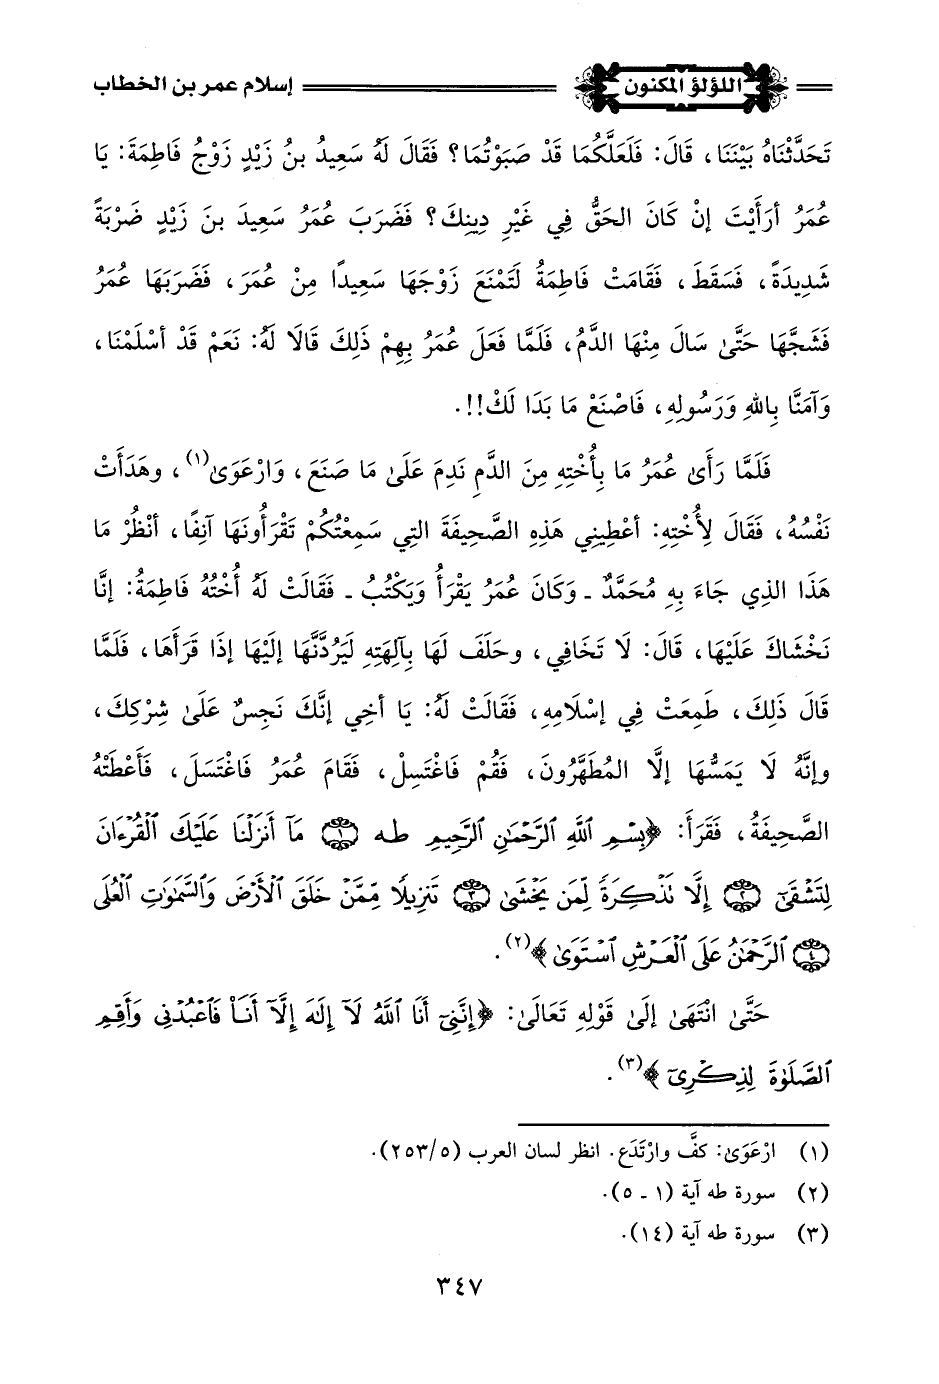 اللؤلؤ المكنون إسلام عمر بن الخطاب
تَحَدَّثْنَاهُ بَيْنَنَا، قَالَ: فَلَعَلَّكُمَا قَدْ صَبَوْتُمَا؟ فَقَالَ لَهُ سَعِيدُ بنُ زَيْدٍ زَوْجُ فَاطِمَةَ: يَا
عُمَرُ أَرَأَيْتَ إنْ كَانَ الحَقُّ فِي غَيْرِ دِينِكَ؟ فَضَرَبَ عُمَرُ سَعِيدَ بنَ زَيْدٍ ضَرْبَةً
شَدِيدَةً، فَسَقَطَ، فَقَامَتْ فَاطِمَةُ لَتَمْنَعَ زَوْجَهَا سَعِيدًا مِنْ عُمَرَ، فَضَرَبَهَا عُمَرُ
فَشَجَّهَا حَتَّىٰ سَالَ مِنْهَا الدَّمُ، فَلَمَّا فَعَلَ عُمَرُ بِهِمْ ذَلِكَ قَالَا لَهُ: نَعَمْ قَدْ أسْلَمْنَا،
وَآمَنَّا بِاللهِ وَرَسُولِهِ، فَاصْنَعْ مَا بَدَا لَكْ!!.
فَلَمَّا رَأَىٰ عُمَرُ مَا بِأُخْتِهِ مِنَ الدَّمِ نَدِمَ عَلَىٰ مَا صَنَعَ، وَارْعَوَىٰ(١)، وهَدَأَتْ
نَفْسُهُ، فَقَالَ لِأُخْتِهِ: أعْطِينِي هَذِهِ الصَّحِيفَةَ التِي سَمِعْتُكُمْ تَقْرَأُونَهَا آنِفًا، أنْظُرْ مَا
هَذَا الذِي جَاءَ بِهِ مُحَمَّدٌ ـ وَكَانَ عُمَرُ يَقْرَأُ وَيَكْتُبُ ـ فَقَالَتْ لَهُ أُخْتُهُ فَاطِمَةُ: إنَّا
نَخْشَاكَ عَلَيْهَا، قَالَ: لَا تَخَافِي، وحَلَفَ لَهَا بِآلِهَتِهِ لَيَرُدَّنَّهَا إلَيْهَا إذَا قَرَأَهَا، فَلَمَّا
قَالَ ذَلِكَ، طَمِعَتْ فِي إسْلَامِهِ، فَقَالَتْ لَهُ: يَا أخِي إنَّكَ نَجِسٌ عَلَىٰ شِرْكِكَ،
وإنَّهُ لَا يَمَسُّهَا إلَّا المُطَهَّرُونَ، فَقُمْ فَاغْتَسِلْ، فَقَامَ عُمَرُ فَاغْتَسَلَ، فَأَعْطَتْهُ
الصَّحِيفَةُ، فَقَرَأَ: ﴿بِسْمِ ٱللَّهِ ٱلرَّحْمَٰنِ ٱلرَّحِيمِ طه ١ مَآ أَنزَلْنَا عَلَيْكَ ٱلْقُرْءَانَ
لِتَشْقَىٰٓ ٢ إِلَّا تَذْكِرَةً لِّمَن يَخْشَىٰ ٣ تَنزِيلًا مِّمَّنْ خَلَقَ ٱلْأَرْضَ وَٱلسَّمَٰوَٰتِ ٱلْعُلَى
٤ ٱلرَّحْمَٰنُ عَلَى ٱلْعَرْشِ ٱسْتَوَىٰ﴾(٢).
حَتَّىٰ انْتَهَىٰ إلَىٰ قَوْلِهِ تَعَالَىٰ: ﴿إِنَّنِىٓ أَنَا ٱللَّهُ لَآ إِلَٰهَ إِلَّآ أَنَا۠ فَٱعْبُدْنِى وَأَقِمِ
ٱلصَّلَوٰةَ لِذِكْرِىٓ﴾(٣).
(١) ارْعَوَىٰ: كفَّ وارْتَدَع. انظر لسان العرب (٢٥٣/٥).
(٢) سورة طه آية (١ ـ ٥).
(٣) سورة طه آية (١٤).
٣٤٧